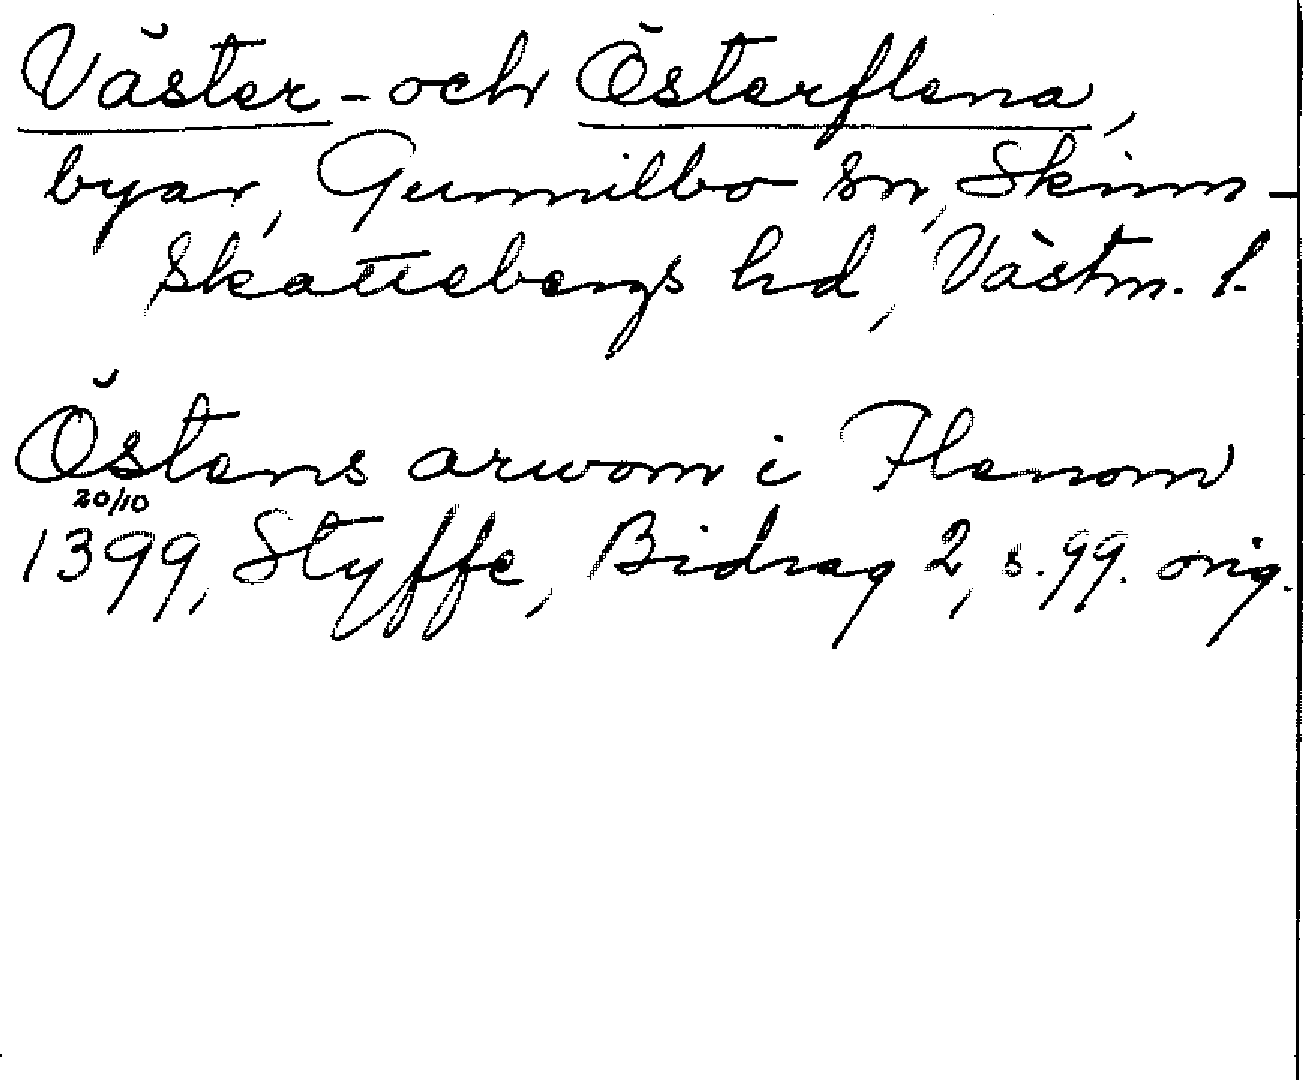 Väster- och Österflena,
byar, Gunnilbo sn, Skinn-
skattebergs hd, Västm. l.
Östens arwom i Flenom
20/10
1399, Styffe, Bidrag 2, s. 99. orig.